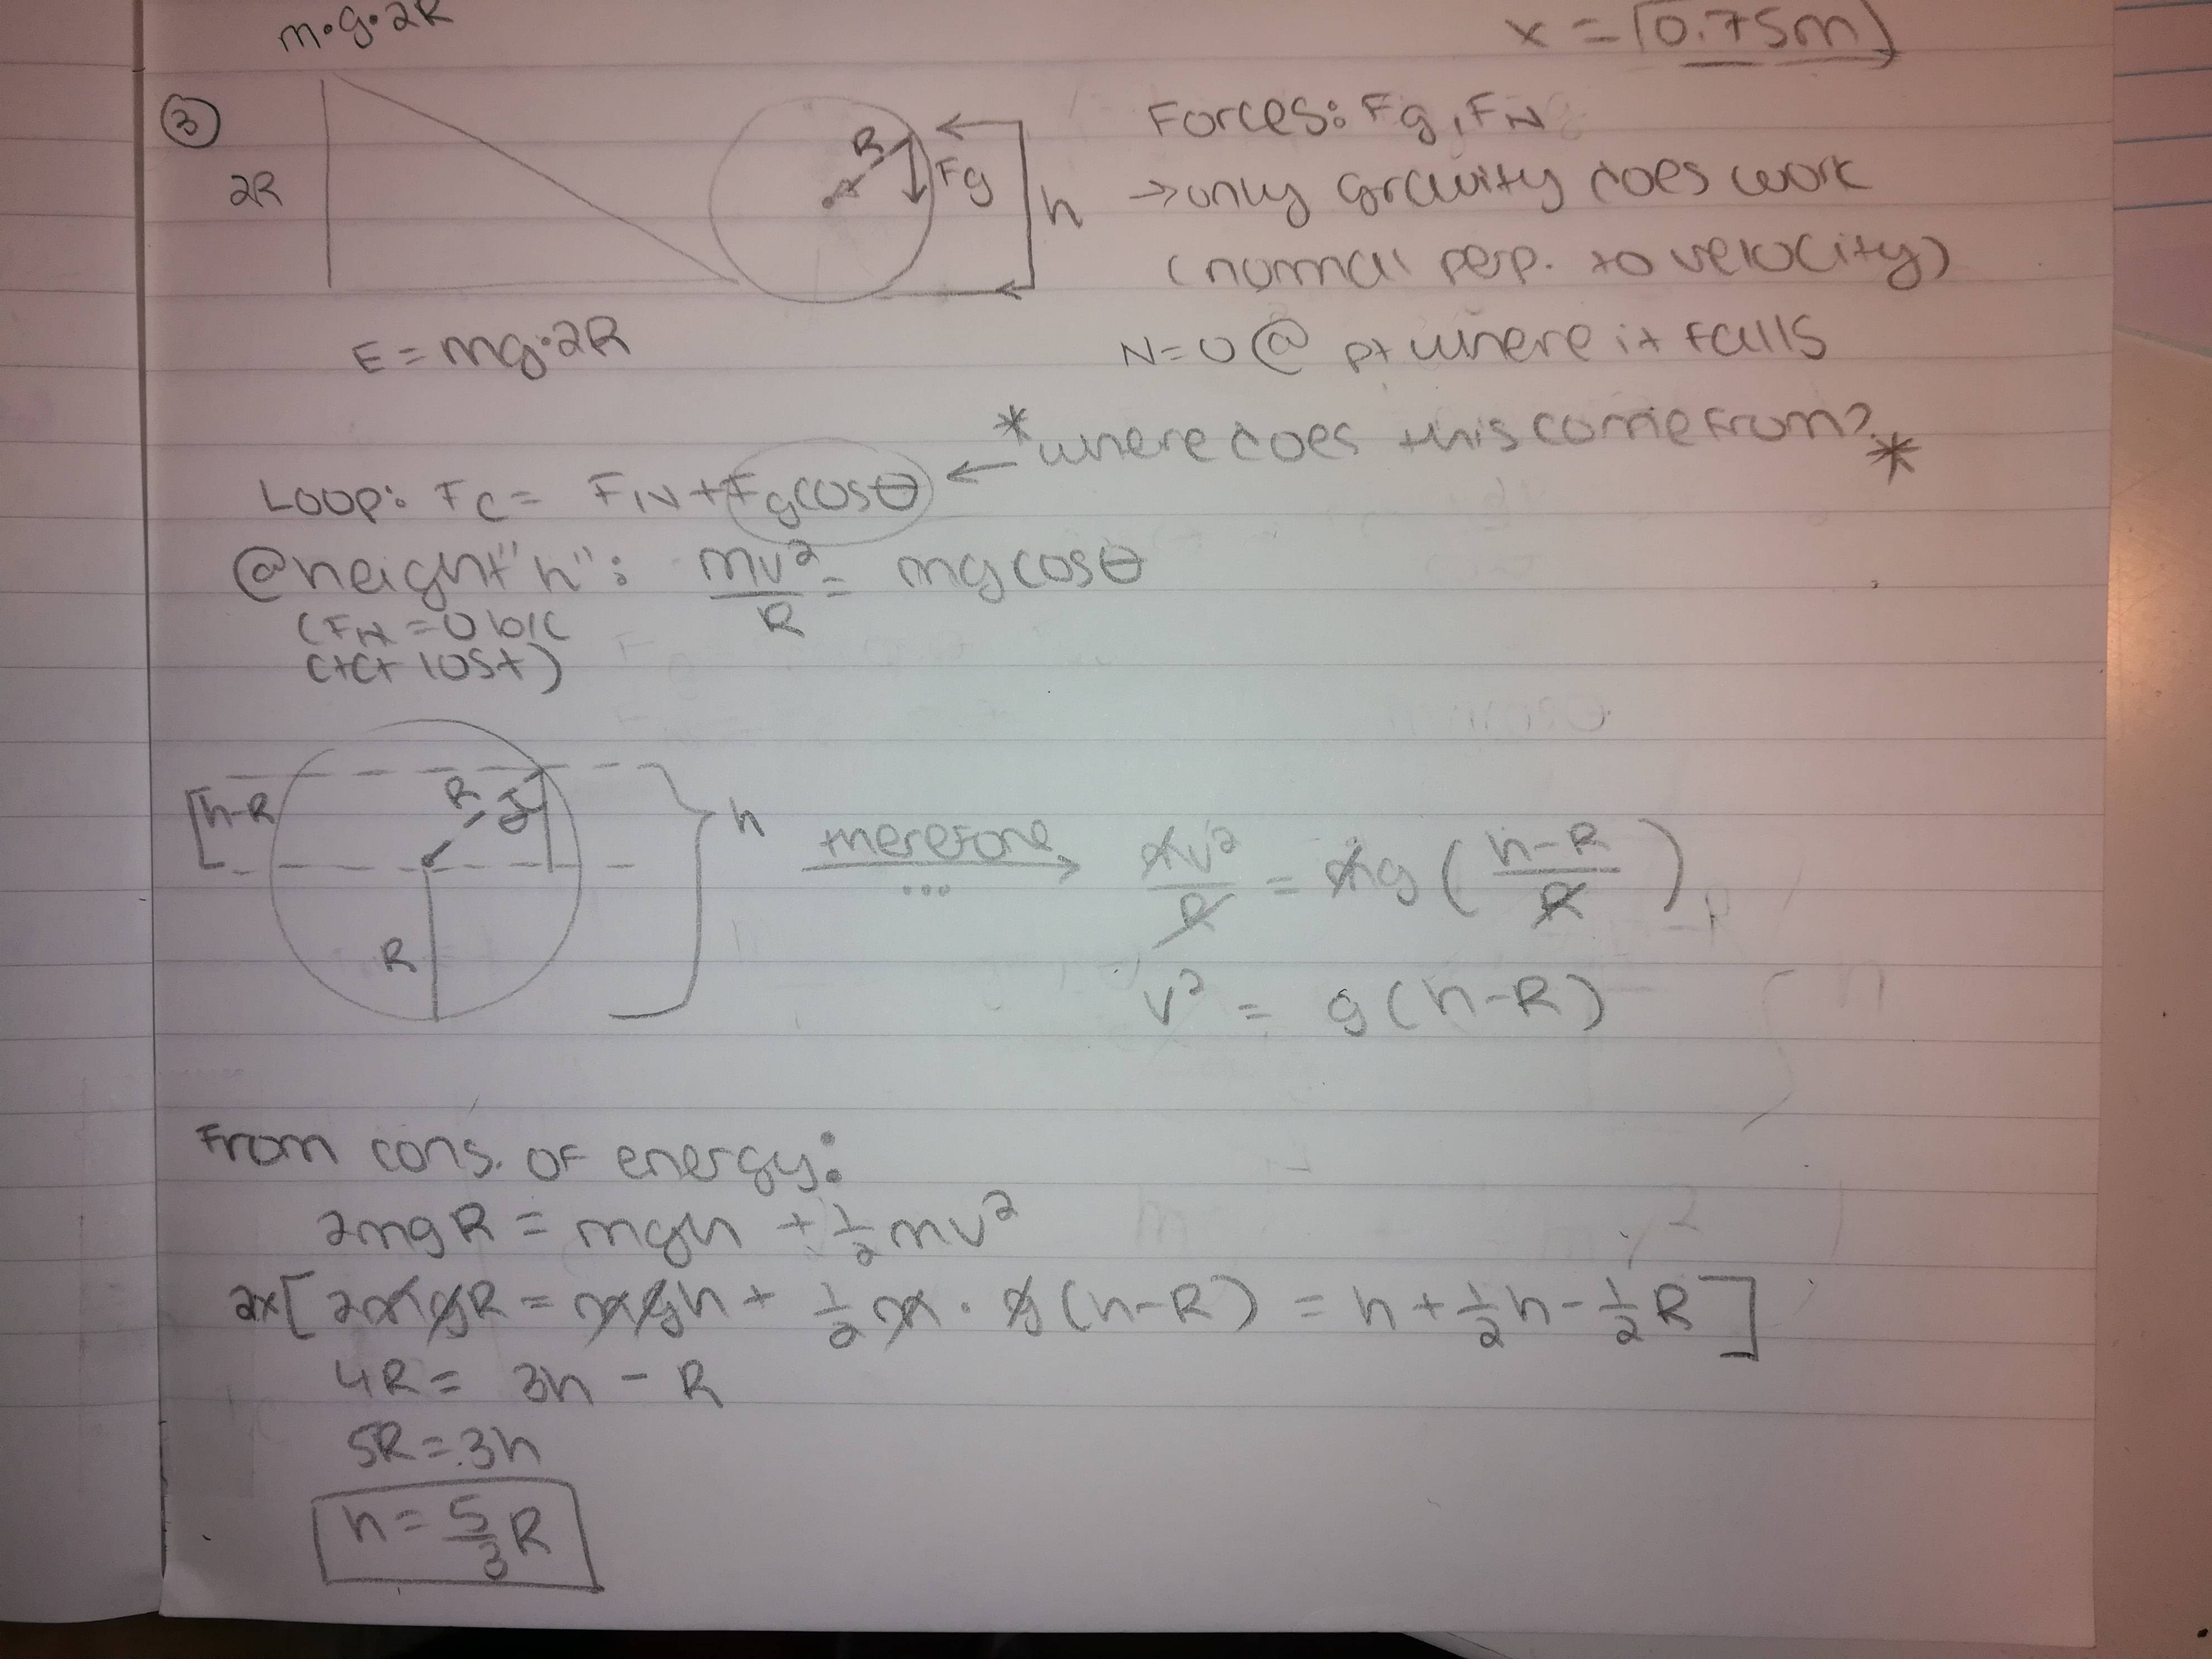 m·g·2R
x = [0.75m]
③
2R
R
Fg
h
E = mg·2R
Forces: Fg, FN
→ only gravity does work
(normal perp. to velocity)
N=0 @ pt where it falls
* where does this come from? *
Loop: Fc = FN + Fgcosθ ←
@height "h": mv²/R = mgcosθ
(FN = 0 b/c
ctct lost)
h-R
R
θ
h
R
therefore
...
mv²/R = mg(h-R/R)
v² = g(h-R)
From cons. of energy:
2mgR = mgh + 1/2 mv²
2x[2mgR = mgh + 1/2 m · g(h-R) = h + 1/2 h - 1/2 R]
4R = 3h - R
5R = 3h
h = 5/3 R